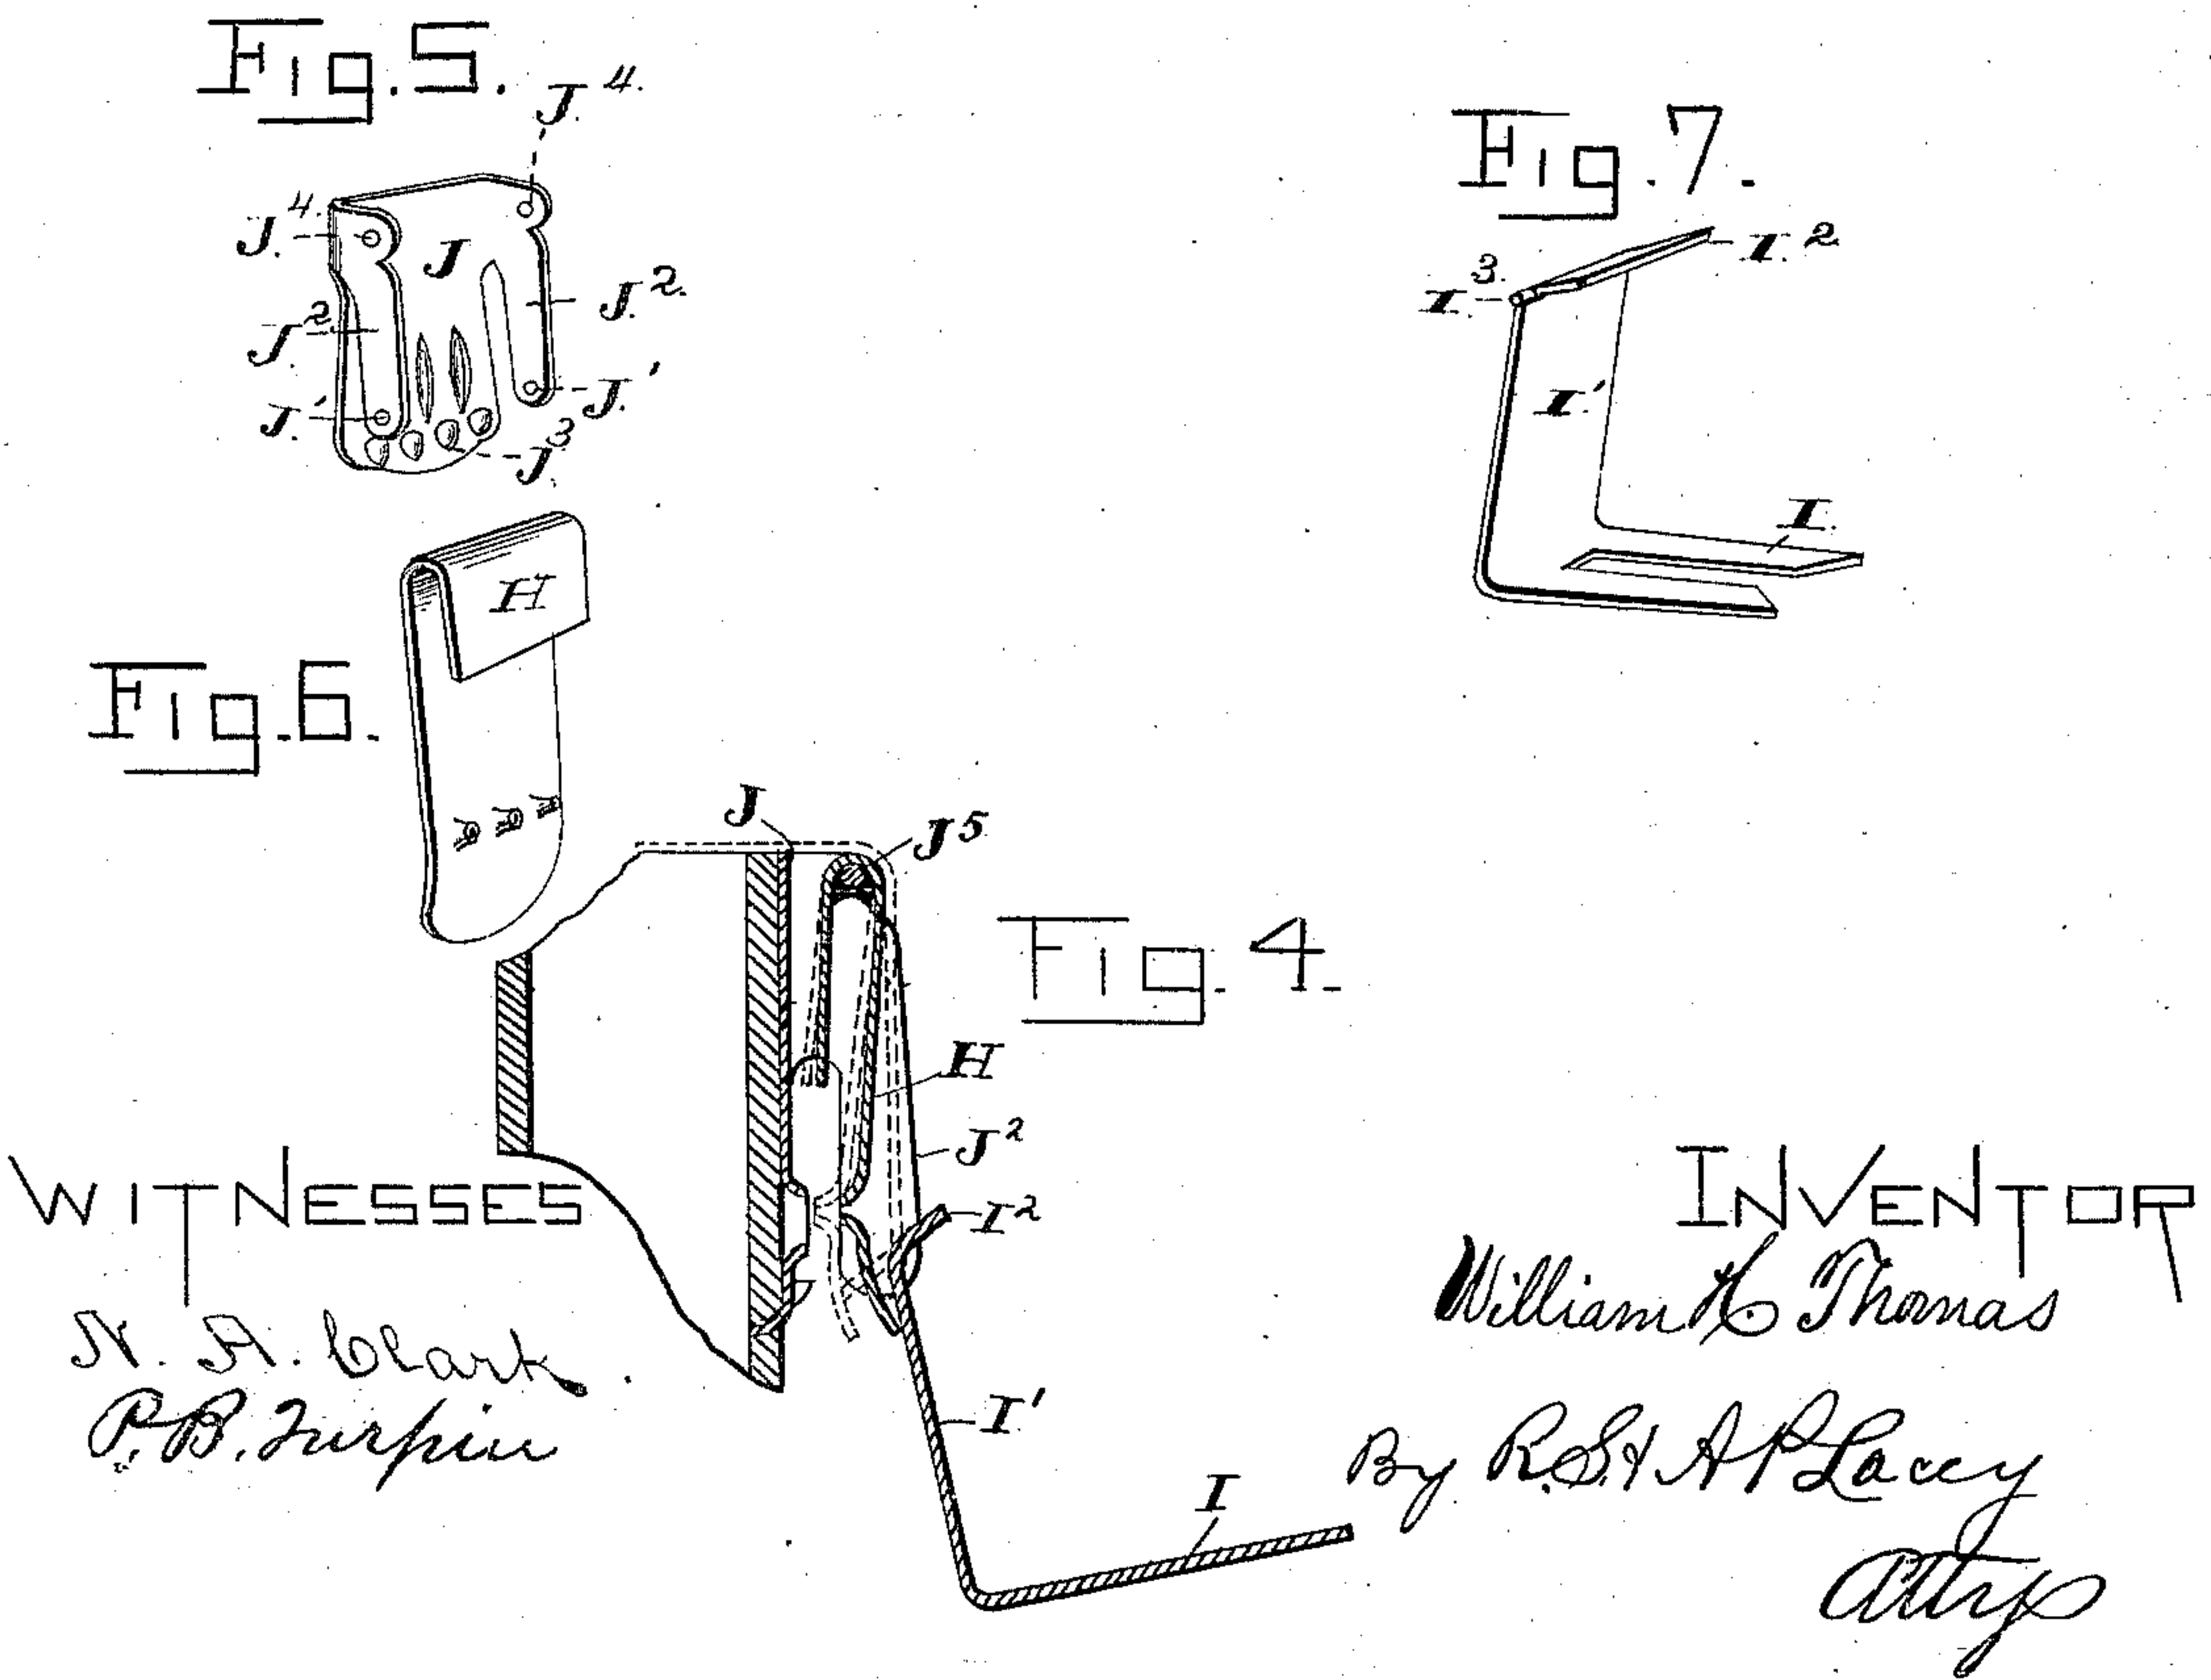 Fig. 5.
J.4.
J.4.
J
J.2.
J.2.
J.'
J.'
J.3
Fig. 7.
I.2.
I.3.
I.'
I.
H
Fig. 6.
J
J5.
Fig. 4.
H
J2
I2
I'.
I
WITNESSES
N. A. Clark.
P. B. Turpin
INVENTOR
William H Thomas
By R. S. & A P Lacey
Attys